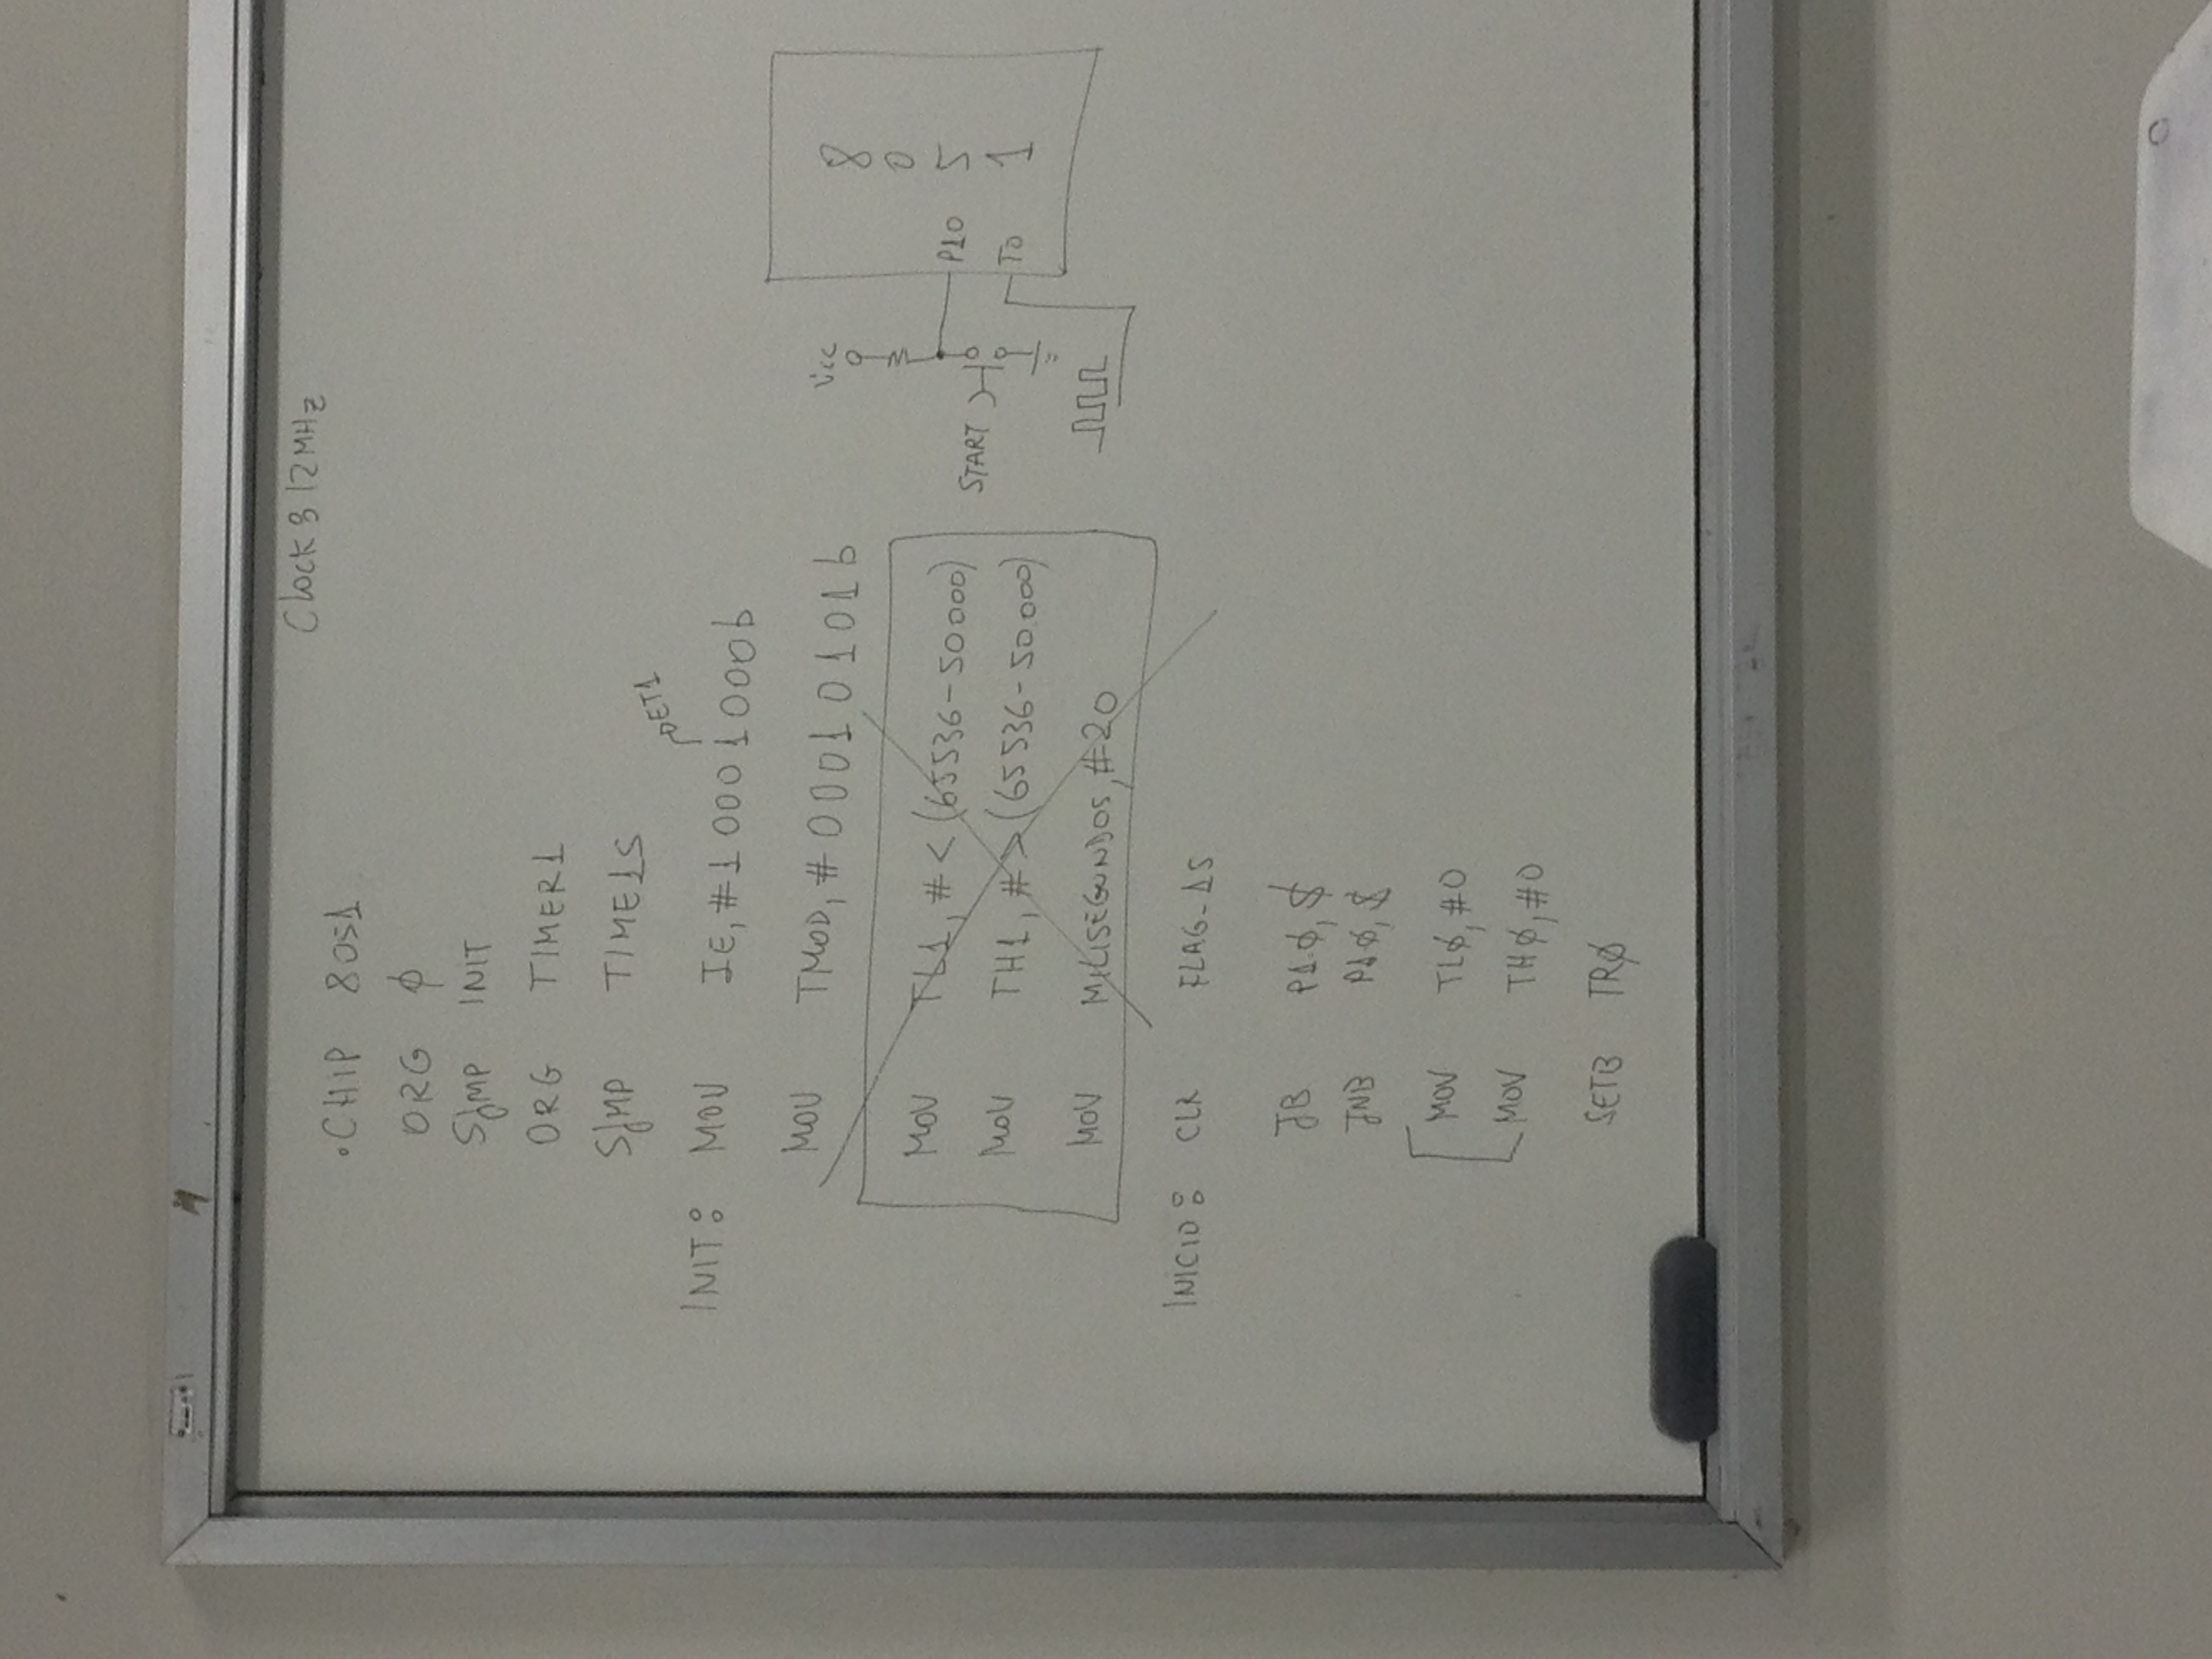 Clock: 12MHz
.CHIP 8051
ORG Ø
SJMP INIT
ORG TIMER1
SJMP TIME1S
ET1
INIT: MOV IE, #10001000b
MOV TMOD, #00010101b
MOV TL1, #<(65536-50000)
MOV TH1, #>(65536-50.000)
MOV MILISEGUNDOS, #20
INICIO: CLR FLAG_1S
JB P1.Ø, $
JNB P1.Ø, $
MOV TLØ, #0
MOV THØ, #0
SETB TRØ
Vcc
START
P10
T0
8
0
5
1